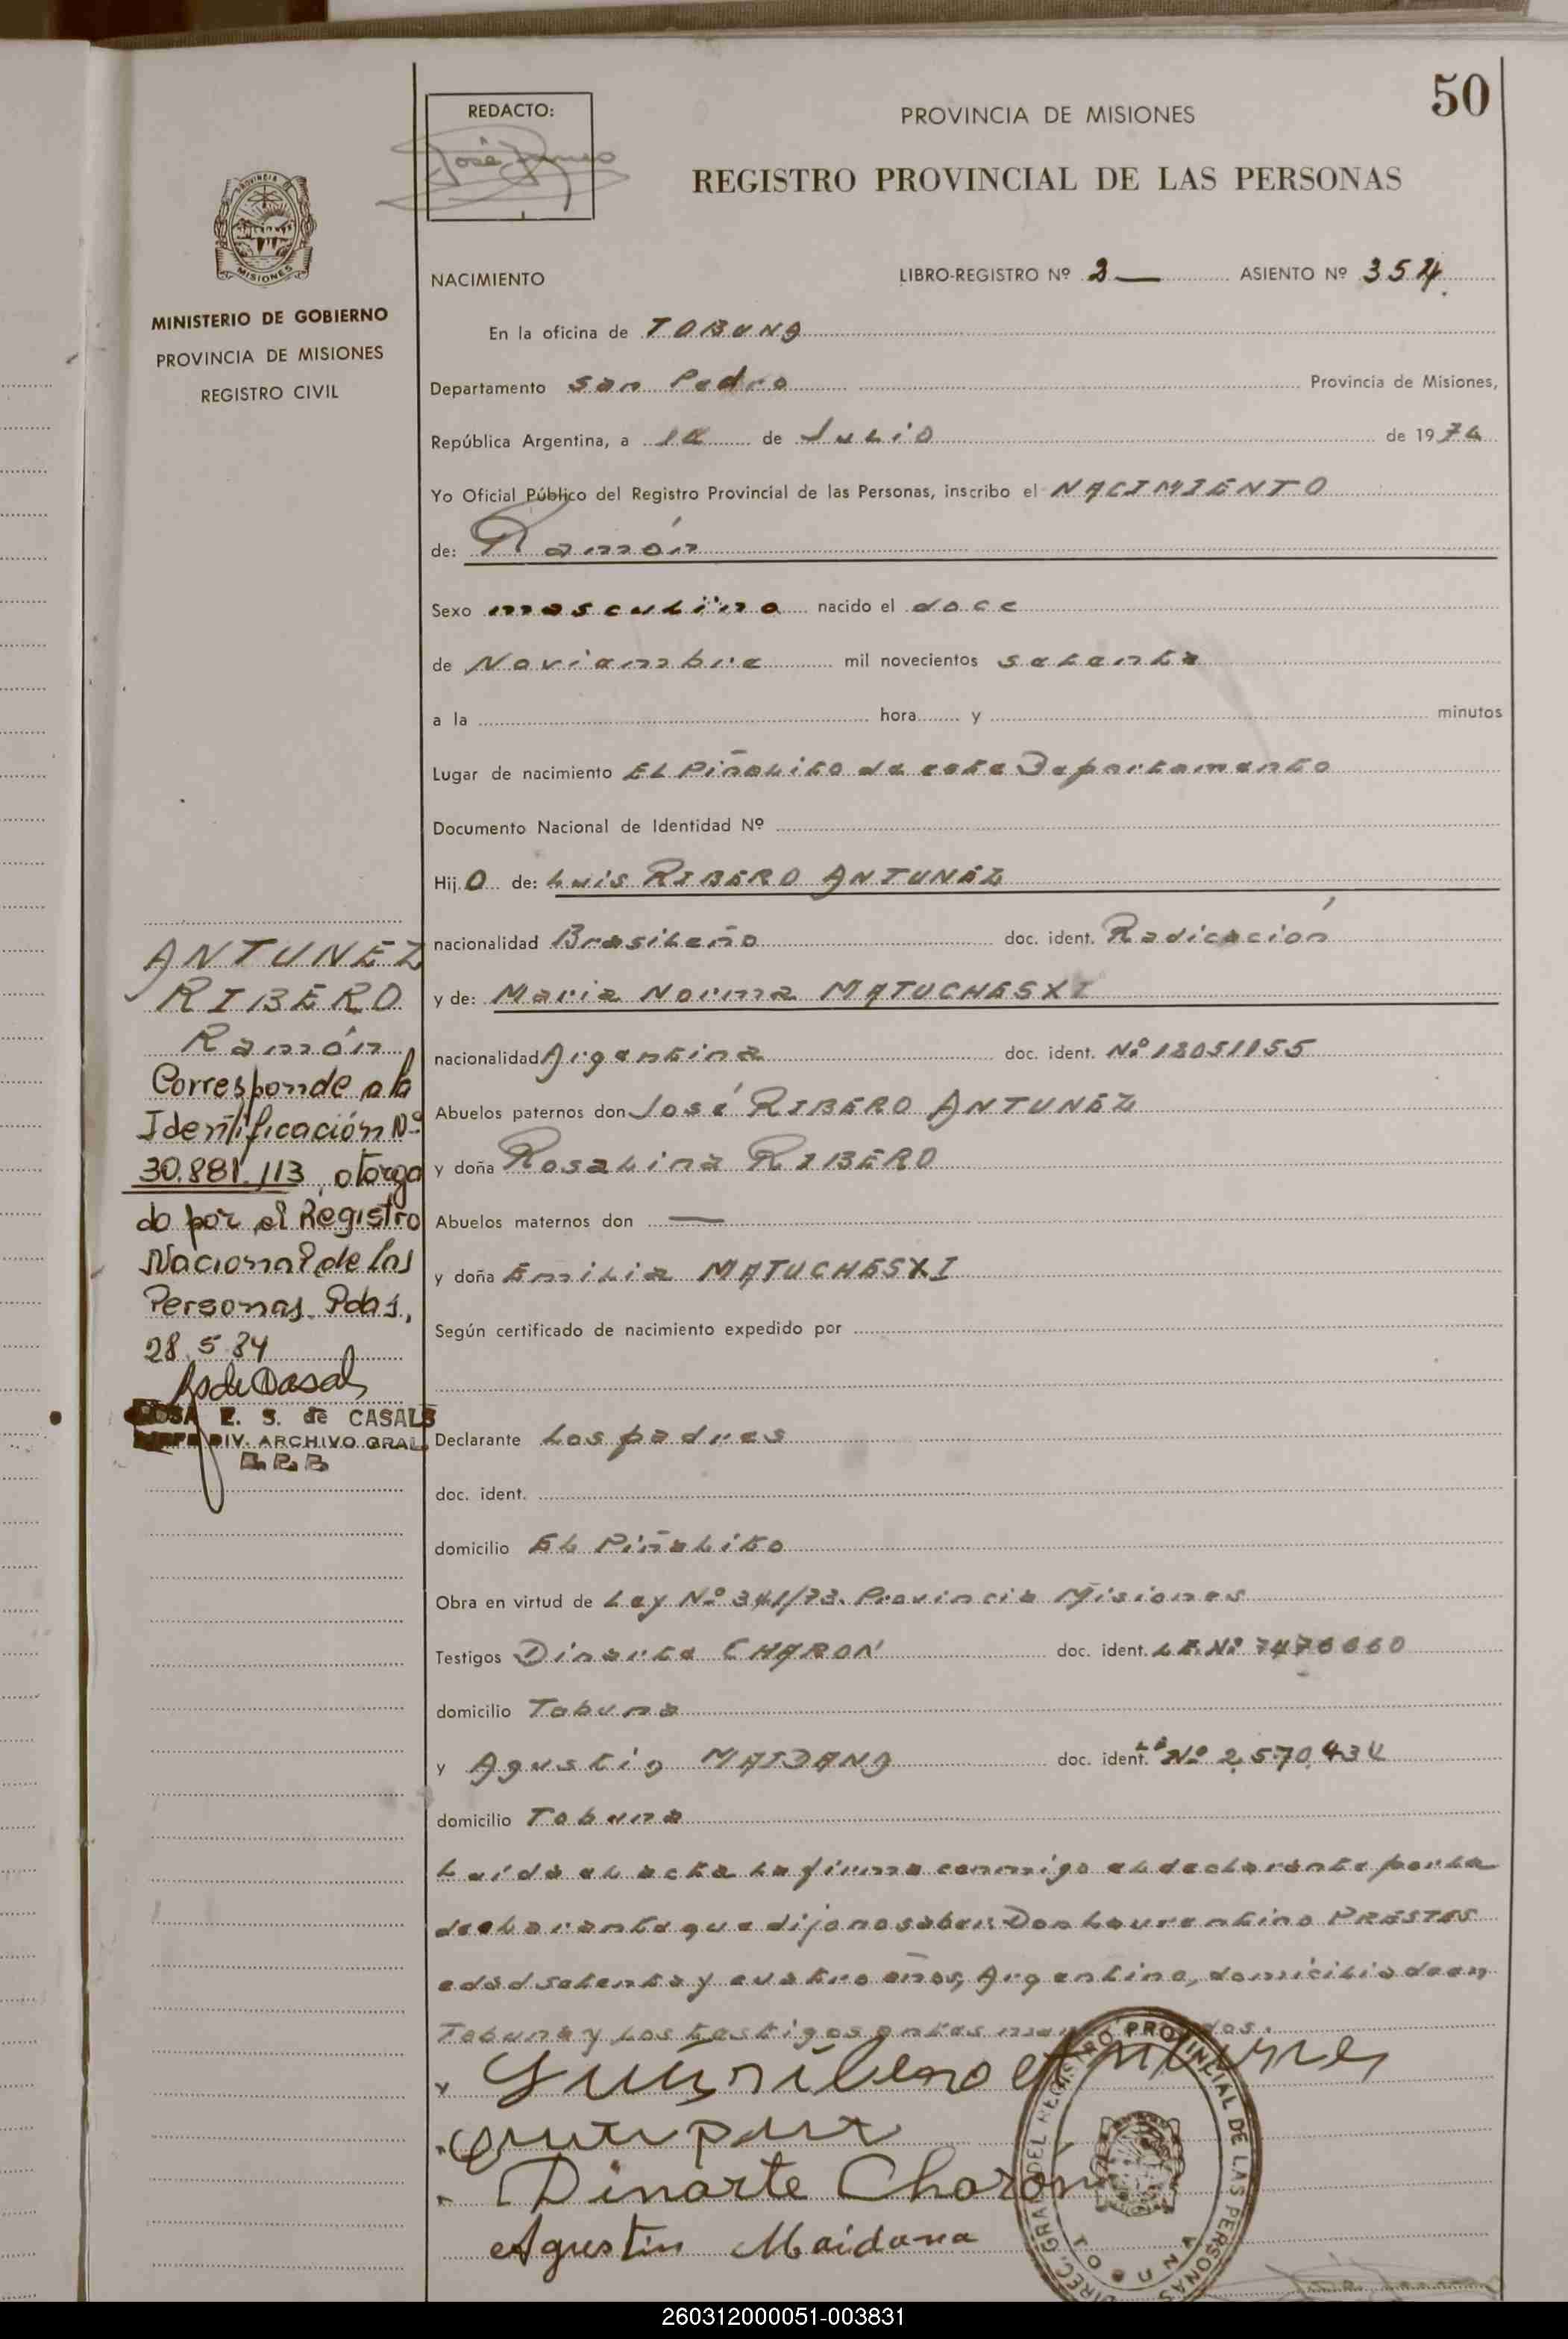 50
REDACTO:
PROVINCIA DE MISIONES
REGISTRO PROVINCIAL DE LAS PERSONAS
MISIONES
MINISTERIO DE GOBIERNO
PROVINCIA DE MISIONES
REGISTRO CIVIL
NACIMIENTO LIBRO-REGISTRO Nº 2 ASIENTO Nº 354
En la oficina de TOBUNA
Departamento San Pedro Provincia de Misiones,
República Argentina, a de Julio de 1974
Yo Oficial Público del Registro Provincial de las Personas, inscribo el NACIMIENTO
de: Ramón
Sexo masculino nacido el doce
de Noviembre mil novecientos setenta
a la hora y minutos
Lugar de nacimiento EL Piñalito de este Departamento
Documento Nacional de Identidad Nº
Hij o de: Luis RIBERO ANTUNEZ
nacionalidad Brasileño doc. ident. Radicación
y de: Maria Norma MATUCHESKI
nacionalidad Argentina doc. ident. Nº 12051155
Abuelos paternos don José RIBERO ANTUNEZ
y doña Rosalina RIBERO
Abuelos maternos don —
y doña Emilia MATUCHESKI
Según certificado de nacimiento expedido por
Declarante Los padres
doc. ident.
domicilio EL Piñalito
Obra en virtud de Ley Nº 341/73. Provincia Misiones
Testigos Dinarte CHARON doc. ident. L.E. Nº 7476660
domicilio Tobuna
y Agustin MAIDANA doc. ident. Nº 2.570.434
domicilio Tobuna
Leída el acta la firma conmigo el declarante por la
declarante que dijo no saber: Don Laurentino PRESTES
edad setenta y cuatro años, Argentino, domiciliado en
Tobuna y los testigos antes
ANTUNEZ
RIBERO
Ramón
Corresponde a la
Identificación Nº
30.881.113, otorga
do por el Registro
Nacional de las
Personas. Pdas,
28.5.84
ROSA E. S. de CASALS
DIV. ARCHIVO GRAL
Dinarte Charón
Agustin Maidana
DIREC. GRAL DEL REGISTRO PROVINCIAL DE LAS PERSONAS
TOBUNA
260312000051-003831